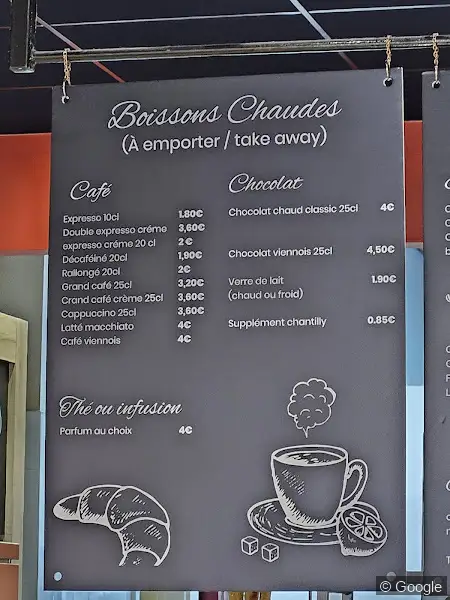 Boissons Chaudes
(À emporter / take away)
Café
Expresso 10cl 1.80€
Double expresso créme 3,60€
expresso créme 20 cl 2 €
Décaféiné 20cl 1,90€
Rallongé 20cl 2€
Grand café 25cl 3,20€
Grand café crème 25cl 3,60€
Cappuccino 25cl 3,60€
Latté macchiato 4€
Café viennois 4€
Thé ou infusion
Parfum au choix 4€
Chocolat
Chocolat chaud classic 25cl 4€
Chocolat viennois 25cl 4,50€
Verre de lait 1.90€
(chaud ou froid)
Supplément chantilly 0.85€
© Google